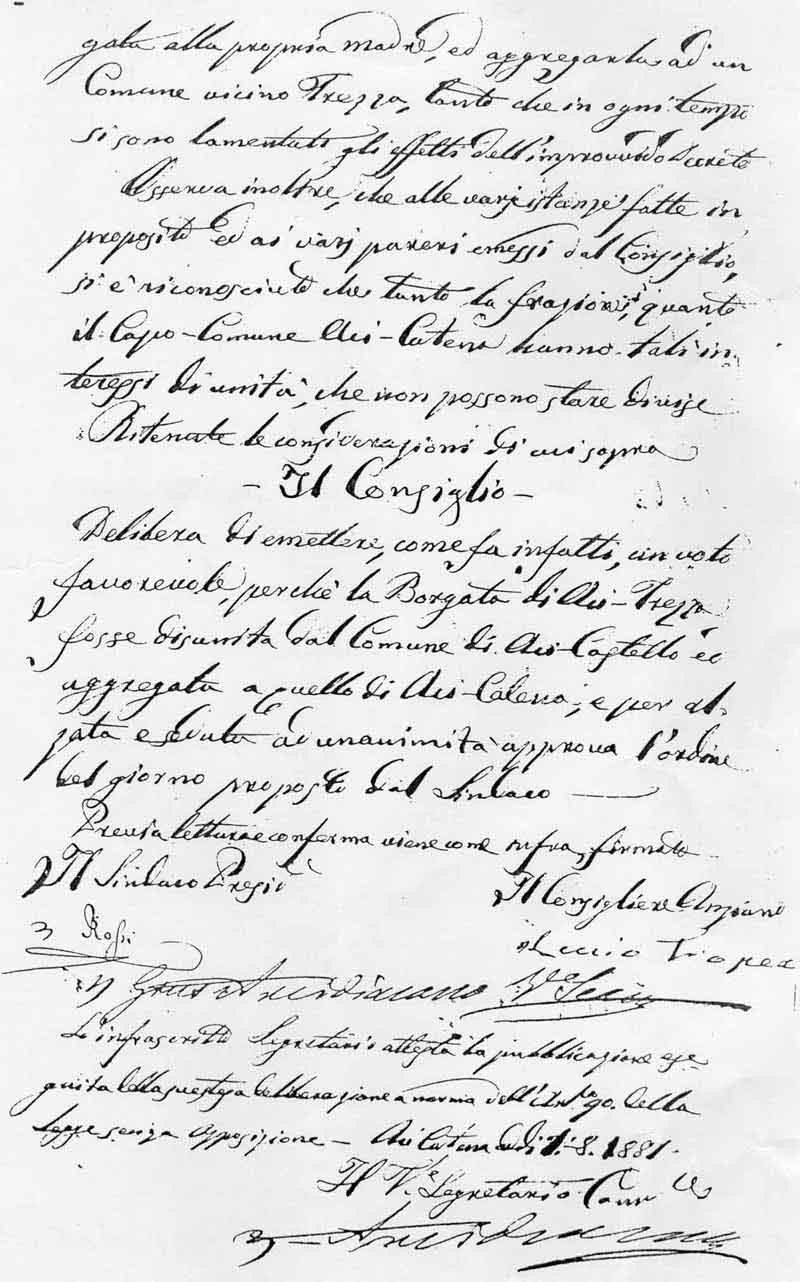 gata alla propria madre, ed aggregarla ad un
Comune vicino Trezza, tanto che in ogni tempo
si sono lamentati gli effetti dell'improvvido Decreto
Osserva inoltre, che alle varie istanze fatte in
proposito ed ai varj pareri emessi dal Consiglio,
si è riconosciuto che tanto la frazione, quanto
il Capo-Comune Aci-Catena hanno tali in-
teressi di unità, che non possono stare divise
Ritenute le considerazioni di cui sopra
- Il Consiglio -
Delibera di emettere, come fa infatti, un voto
favorevole, perchè la Borgata di Aci-Trezza
fosse disunita dal Comune di Aci-Castello ed
aggregata a quello di Aci-Catena; e per al-
zata e seduta ad unanimità approva l'ordine
del giorno proposto dal Sindaco
Previa lettura e conferma viene come infra, firmato
Il Sindaco Presid
Il Consigliere Anziano
Rossi
Lucio
Arcidiacono Vo Seg
L'infrascritto Segretario attesta la pubblicazione ese-
guita della suestesa deliberazione a norma dell'art. 90. della
legge senza opposizione - Aci Catena 1-8. 1881.
Il Ve Segretario Com le
Arcidiacono